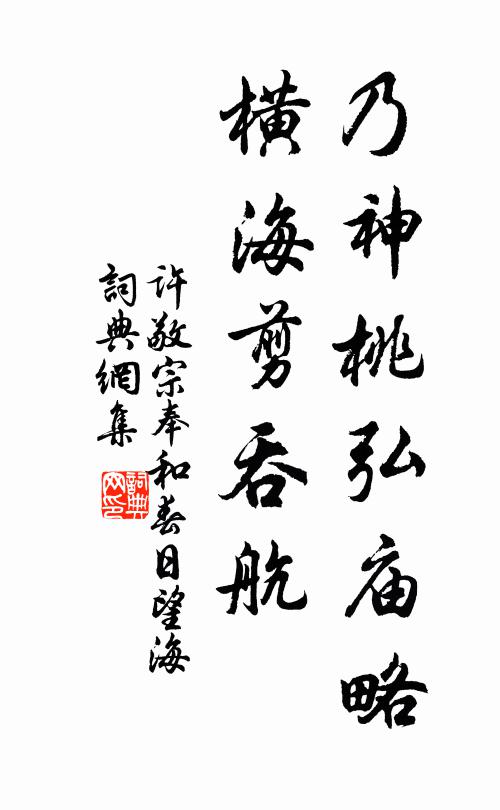 乃神桃弘庙略
横海剪吞航
許敬宗奉和春日望海
詞典網集
詞典网印